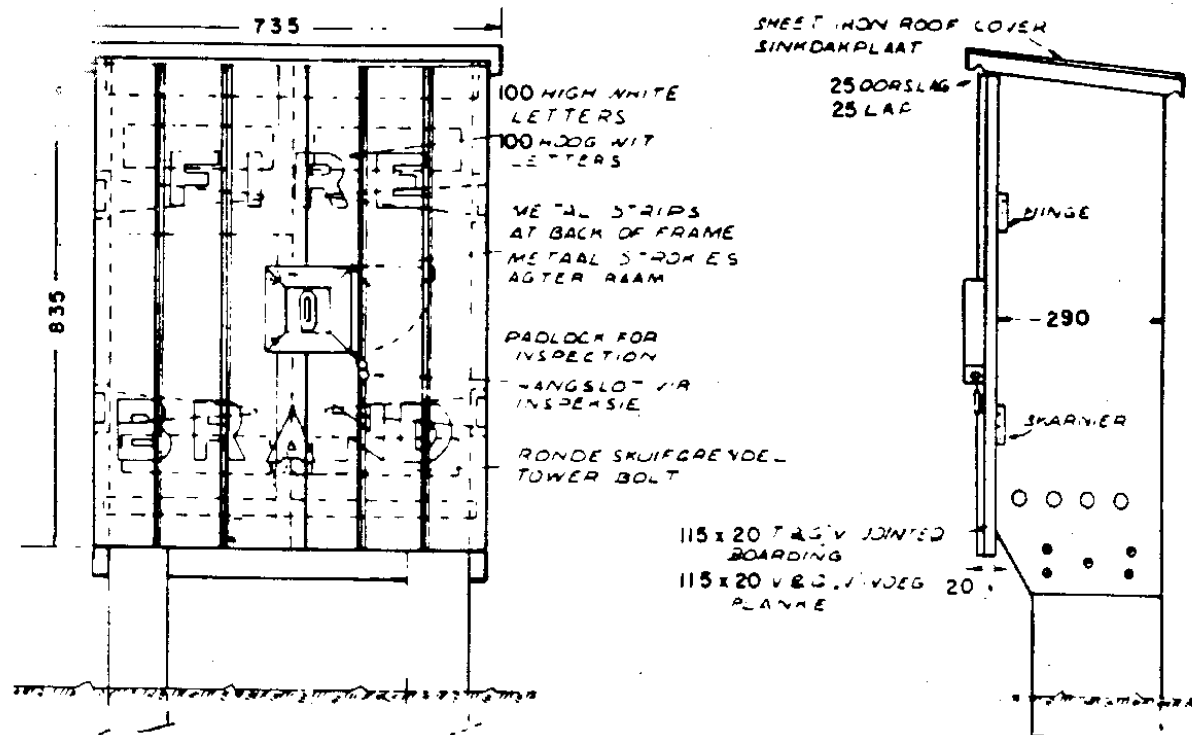 735
835
FIRE
BRAND
100 HIGH WHITE
LETTERS
100 HOOG WIT
LETTERS
METAL STRIPS
AT BACK OF FRAME
METAAL STROKIES
AGTER RAAM
PADLOCK FOR
INSPECTION
HANGSLOT VIR
INSPEKSIE
RONDE SKUIFGRENDEL
TOWER BOLT
SHEET IRON ROOF COVER
SINKDAKPLAAT
25 OORSLAG
25 LAP
HINGE
290
SKARNIER
115 x 20 T & G V JOINTED
BOARDING
115 x 20 V & G V VOEG
PLANKE
20